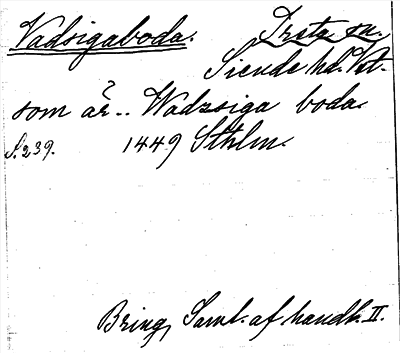 Vadsigaboda. Irsta sn.
Siende hd. Vstm.
som är .. Wadzsiga boda
S. 239. 1449 Sthlm.
Bring, Saml. af handl. II.